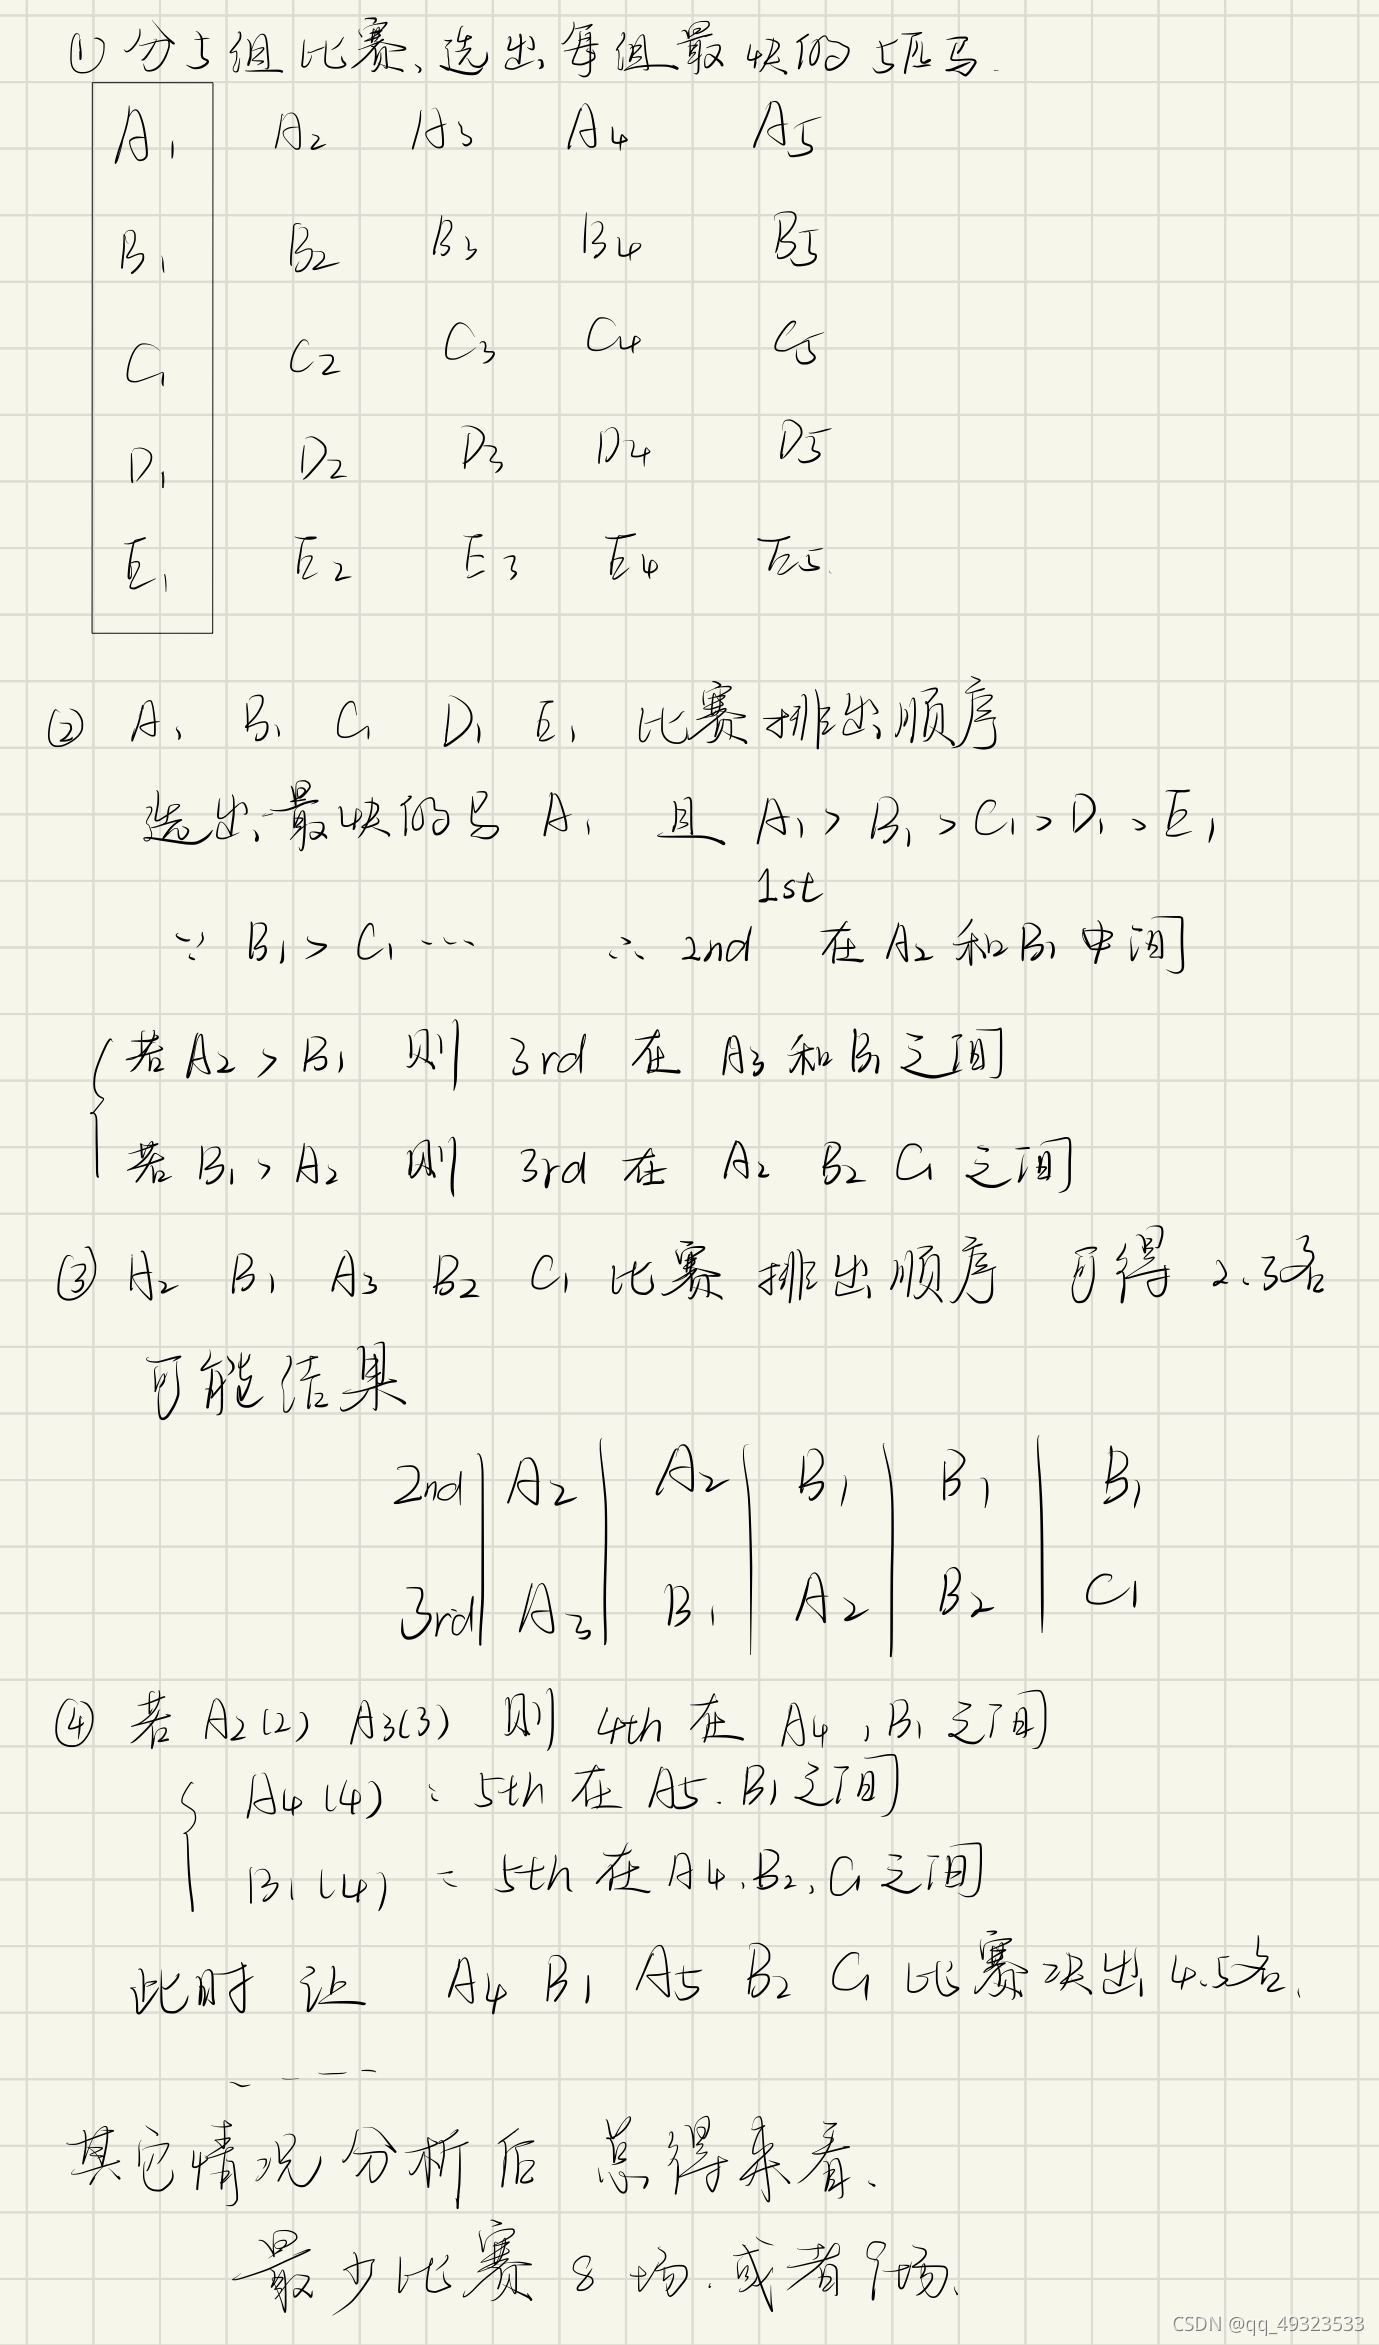 ① 分5组比赛、选出每组最快的5匹马.
A1 A2 A3 A4 A5
B1 B2 B3 B4 B5
C1 C2 C3 C4 C5
D1 D2 D3 D4 D5
E1 E2 E3 E4 E5
② A1 B1 C1 D1 E1 比赛排出顺序
选出最快的马 A1 且 A1 > B1 > C1 > D1 > E1
1st
∵ B1 > C1 ... ∴ 2nd 在 A2 和 B1 中间
若 A2 > B1 则 3rd 在 A3 和 B1 之间
若 B1 > A2 则 3rd 在 A2 B2 C1 之间
③ A2 B1 A3 B2 C1 比赛 排出顺序 可得 2.3名
可能结果
2nd | A2 | A2 | B1 | B1 | B1
3rd | A3 | B1 | A2 | B2 | C1
④ 若 A2(2) A3(3) 则 4th 在 A4, B1 之间
A4(4) : 5th 在 A5. B1 之间
B1(4) : 5th 在 A4. B2, C1 之间
此时 让 A4 B1 A5 B2 C1 比赛决出 4.5名.
....
其它情况分析后 总得来看.
最少比赛 8场. 或者9场.
CSDN @qq_49323533